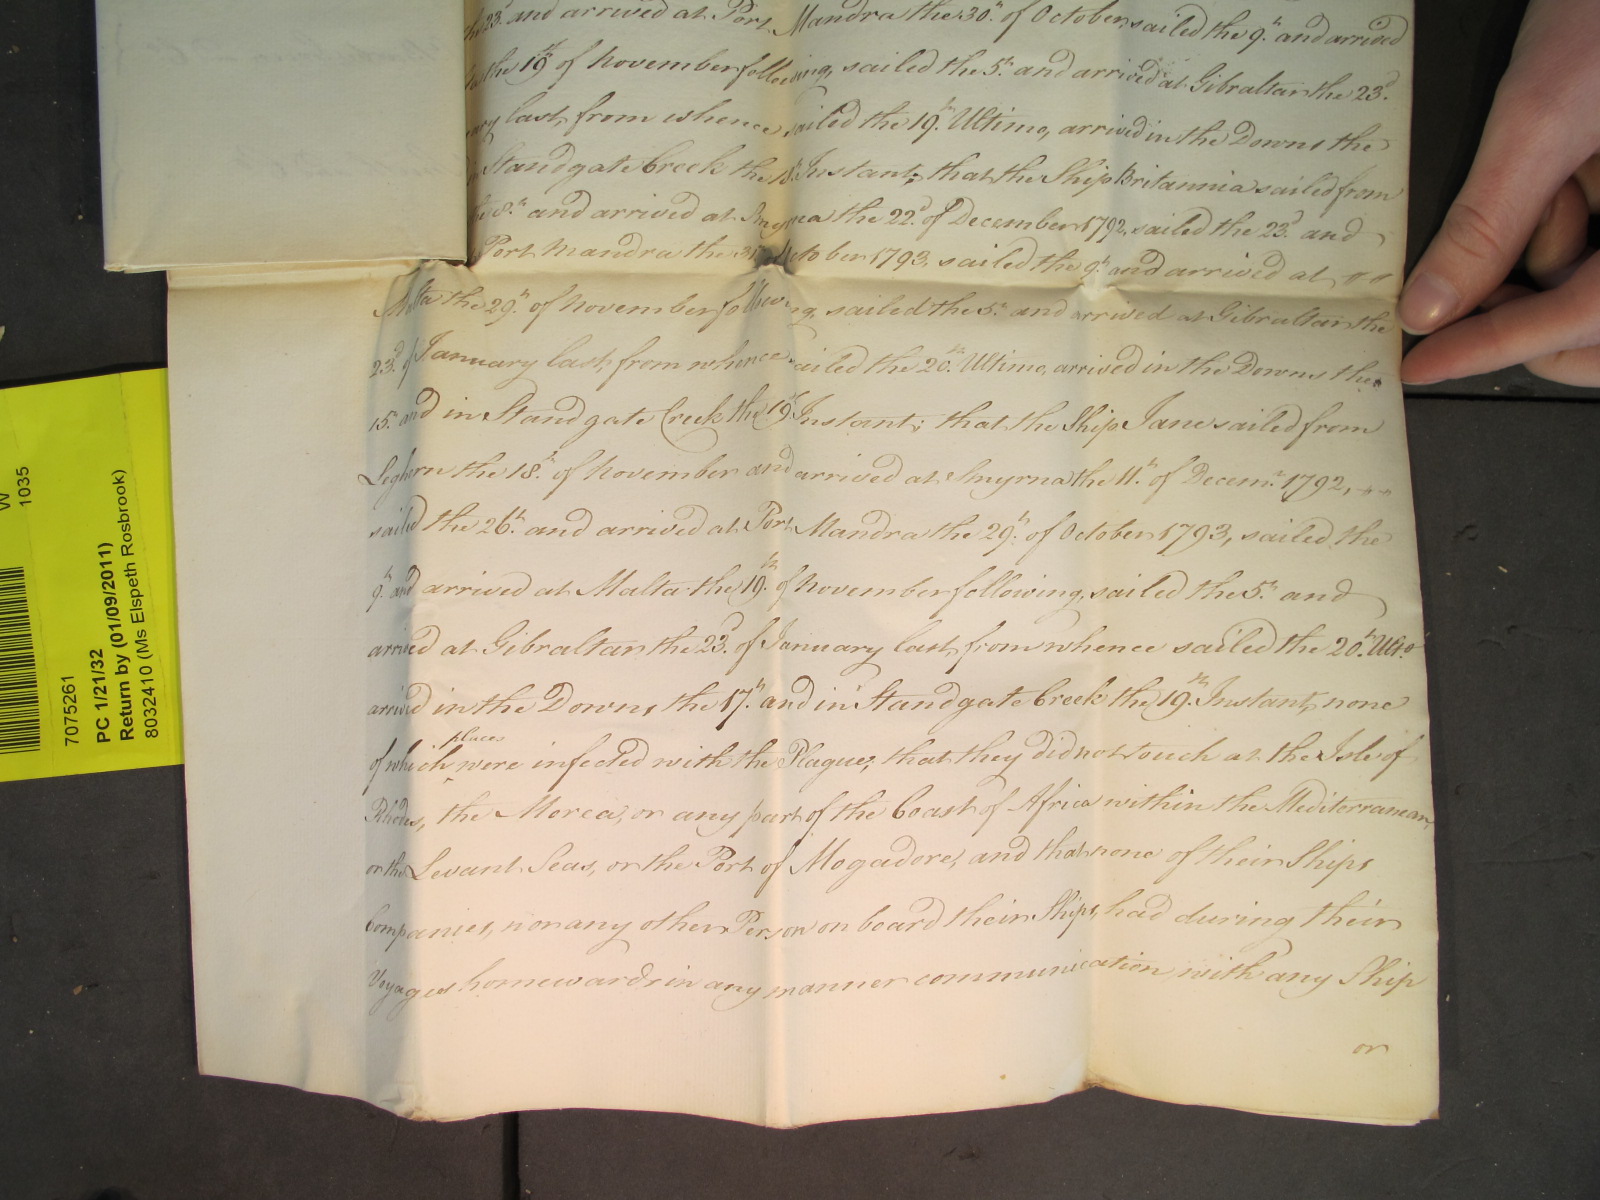 23.d and arrived at Port Mandra the 30.th of October, sailed the 9.th and arrived
the 19.th of November following, sailed the 5.th and arrived at Gibraltar the 23.d
last, from whence sailed the 19.th Ultimo, arrived in the Downs the
Standgate Creek the 18.th Instant; that the Ship Britannia sailed from
8.th and arrived at Smyrna the 22.d of December 1792, sailed the 23.d and
Port Mandra the 31.st October 1793, sailed the 9.th and arrived at
Malta the 29.th of November following, sailed the 5.th and arrived at Gibraltar the
23.d of January last, from whence sailed the 20.th Ultimo, arrived in the Downs the
15.th and in Standgate Creek the 19.th Instant; that the Ship Jane sailed from
Leghorn the 18.th of November and arrived at Smyrna the 11.th of Decem.r 1792,
sailed the 26.th and arrived at Port Mandra the 29.th of October 1793, sailed the
9.th and arrived at Malta the 19.th of November following, sailed the 5.th and
arrived at Gibraltar the 23.d of January last, from whence sailed the 20.th Ult.o
arrived in the Downs the 17.th and in Standgate Creek the 19.th Instant, none
place
of which were infected with the Plague; that they did not touch at the Isle of
Rhodes, the Morea, or any part of the Coast of Africa within the Mediterranean,
or the Levant Seas, or the Port of Mogadore, and that none of their Ships
Companies, nor any other Person on board their Ships, had during their
Voyages homewards in any manner communication with any Ship
or
W
1035
7075261
PC 1/21/32
Return by (01/09/2011)
8032410 (Ms Elspeth Rosbrook)